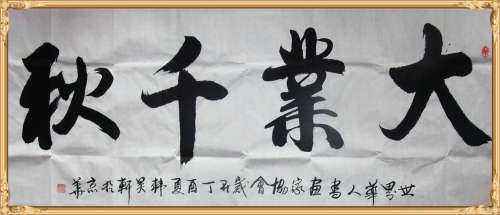 大業千秋
世界華人書畫家協會歲在丁酉夏韩吴軒於京華